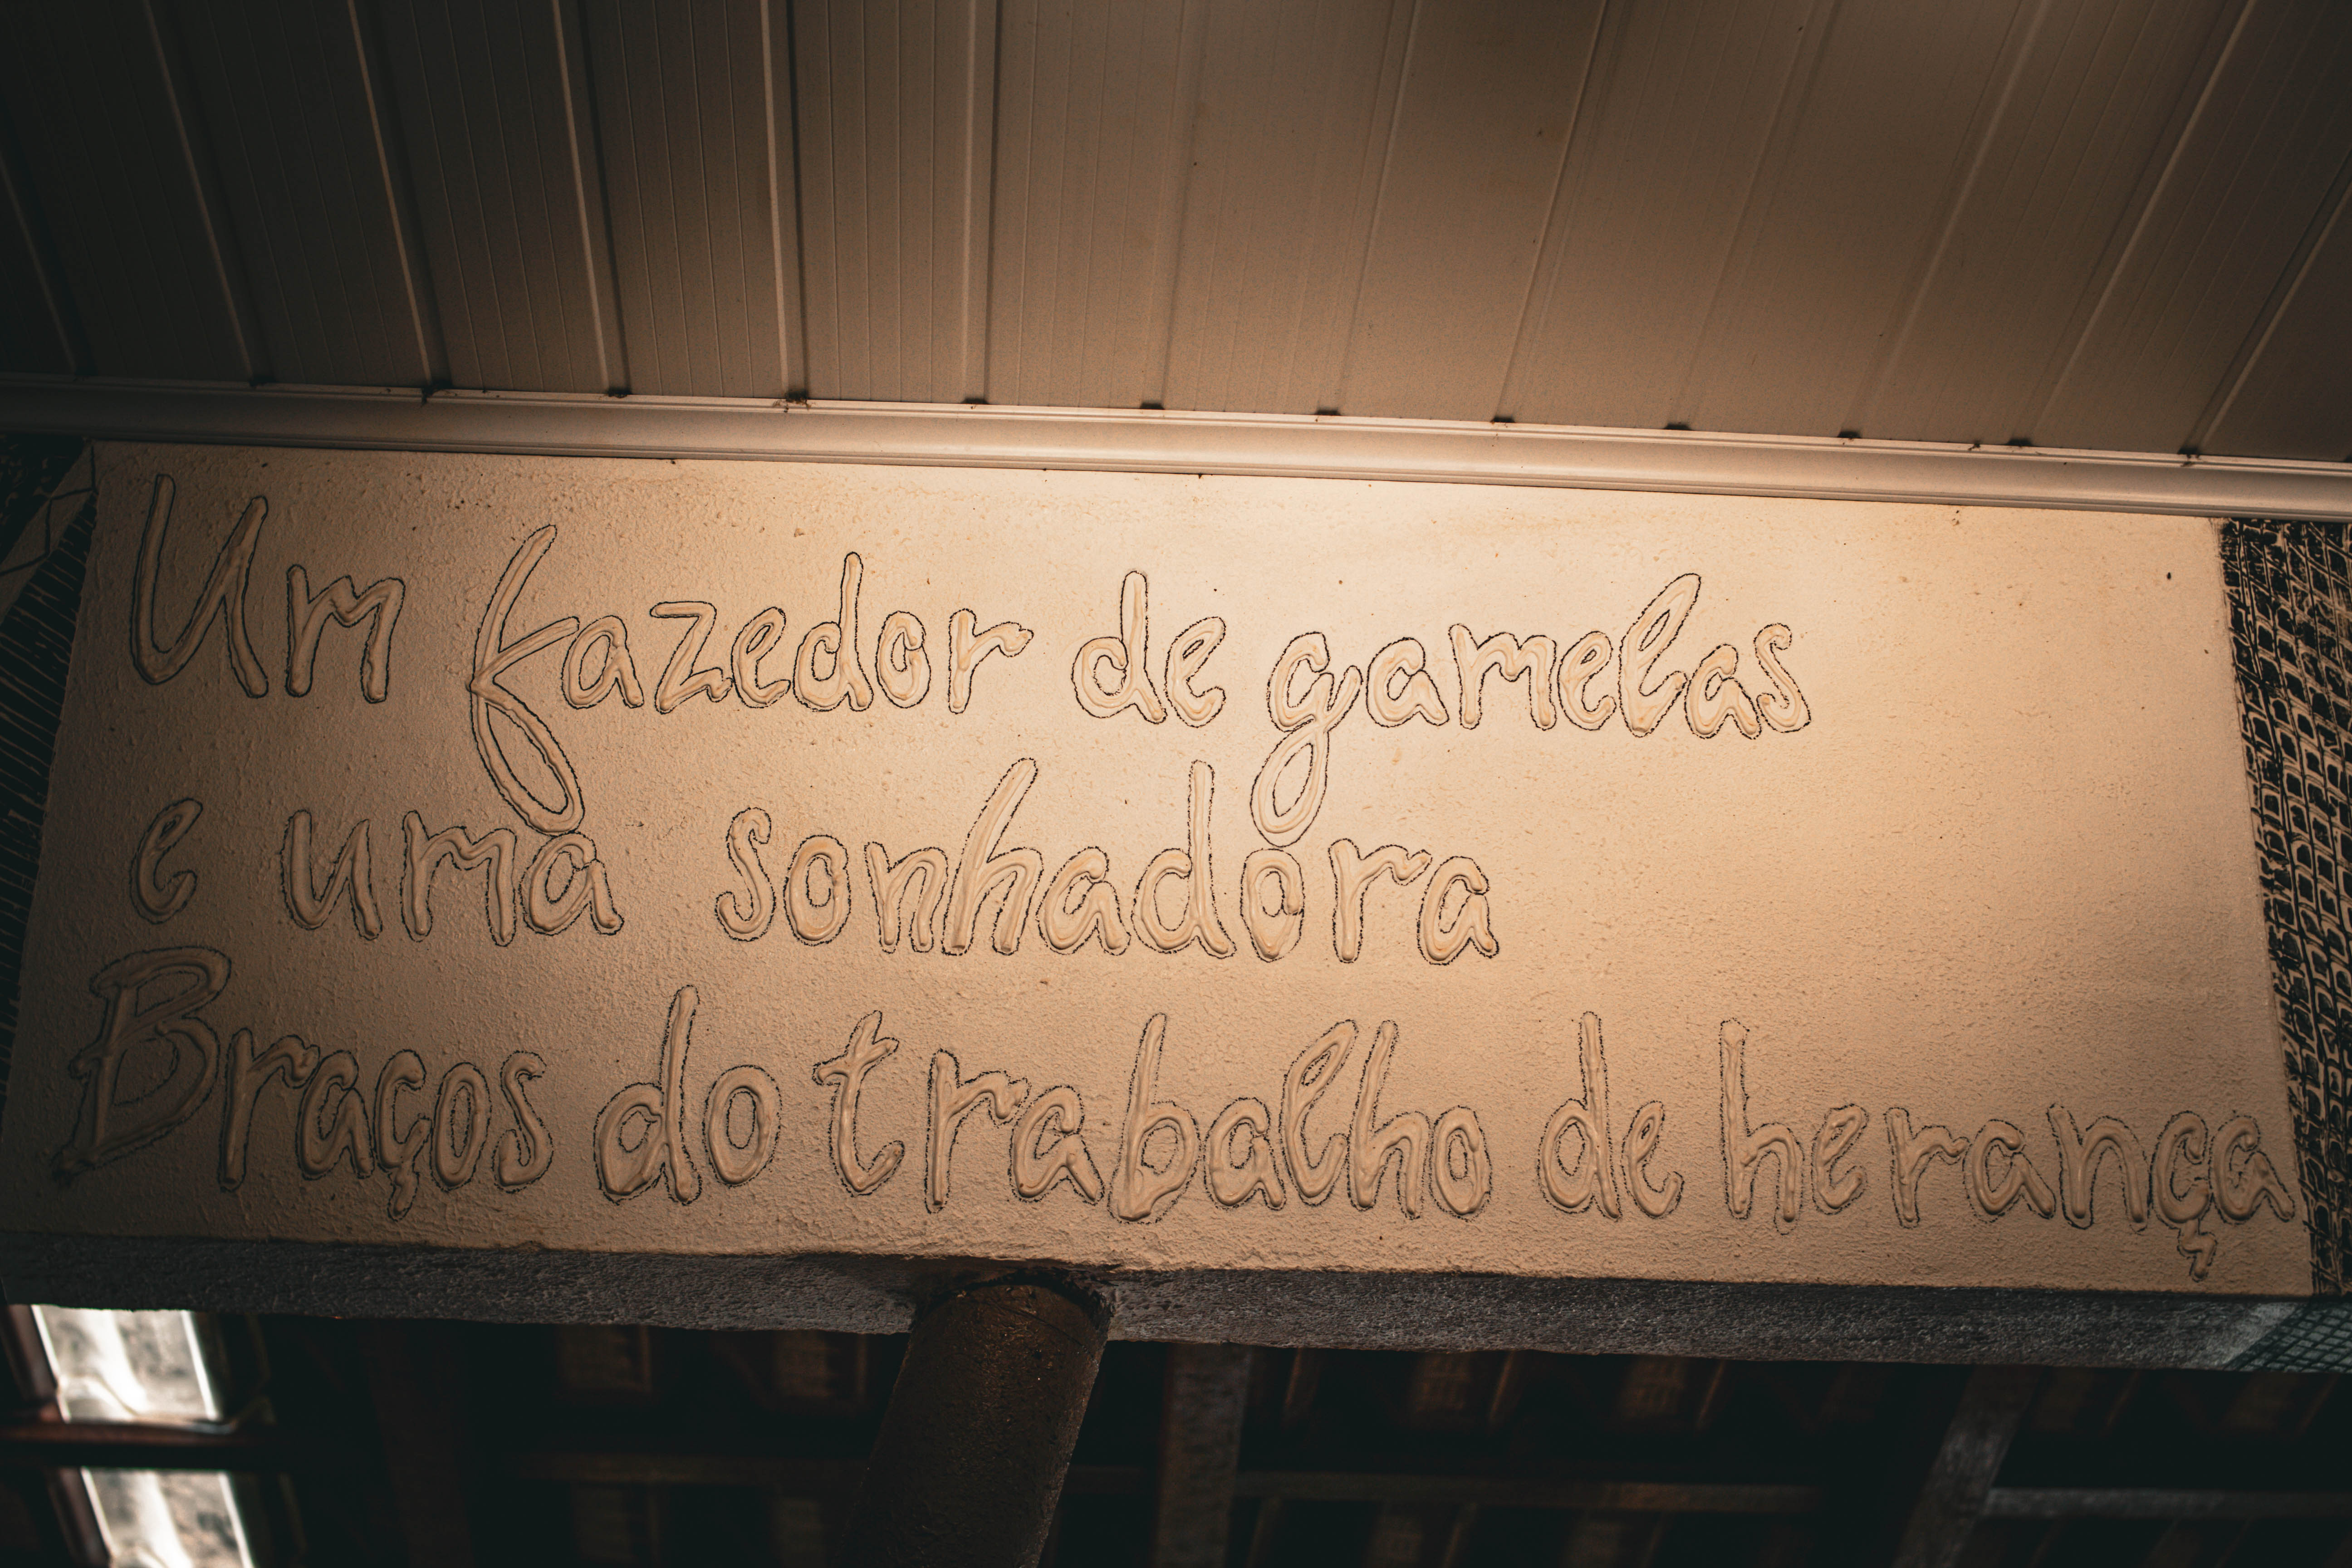 Um fazedor de gamelas
e uma sonhadora
Braços do trabalho de herança